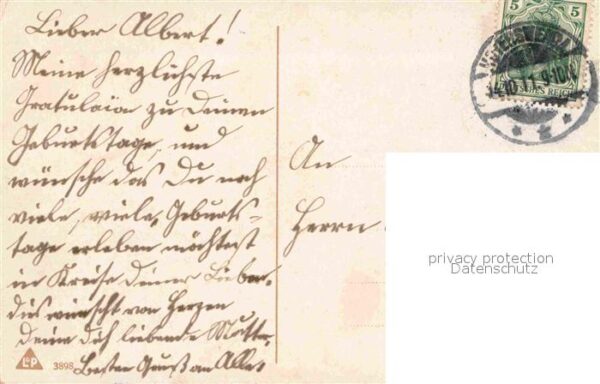 Lieber Albert!
Meine herzlichste
Gratulaion zu Deinem
Geburtstage, und
wünsche das Du noch
viele, viele, Geburts-
tage erleben möchtest
in Kreise deiner Lieben.
dis wünscht von Herzen
deine dich liebende Mutter.
Besten Gruß an Alle.
An
Herrn
5 5
DEUTSCHES REICH
14.10.11. 9-10
privacy protection
Datenschutz
L&P
3898